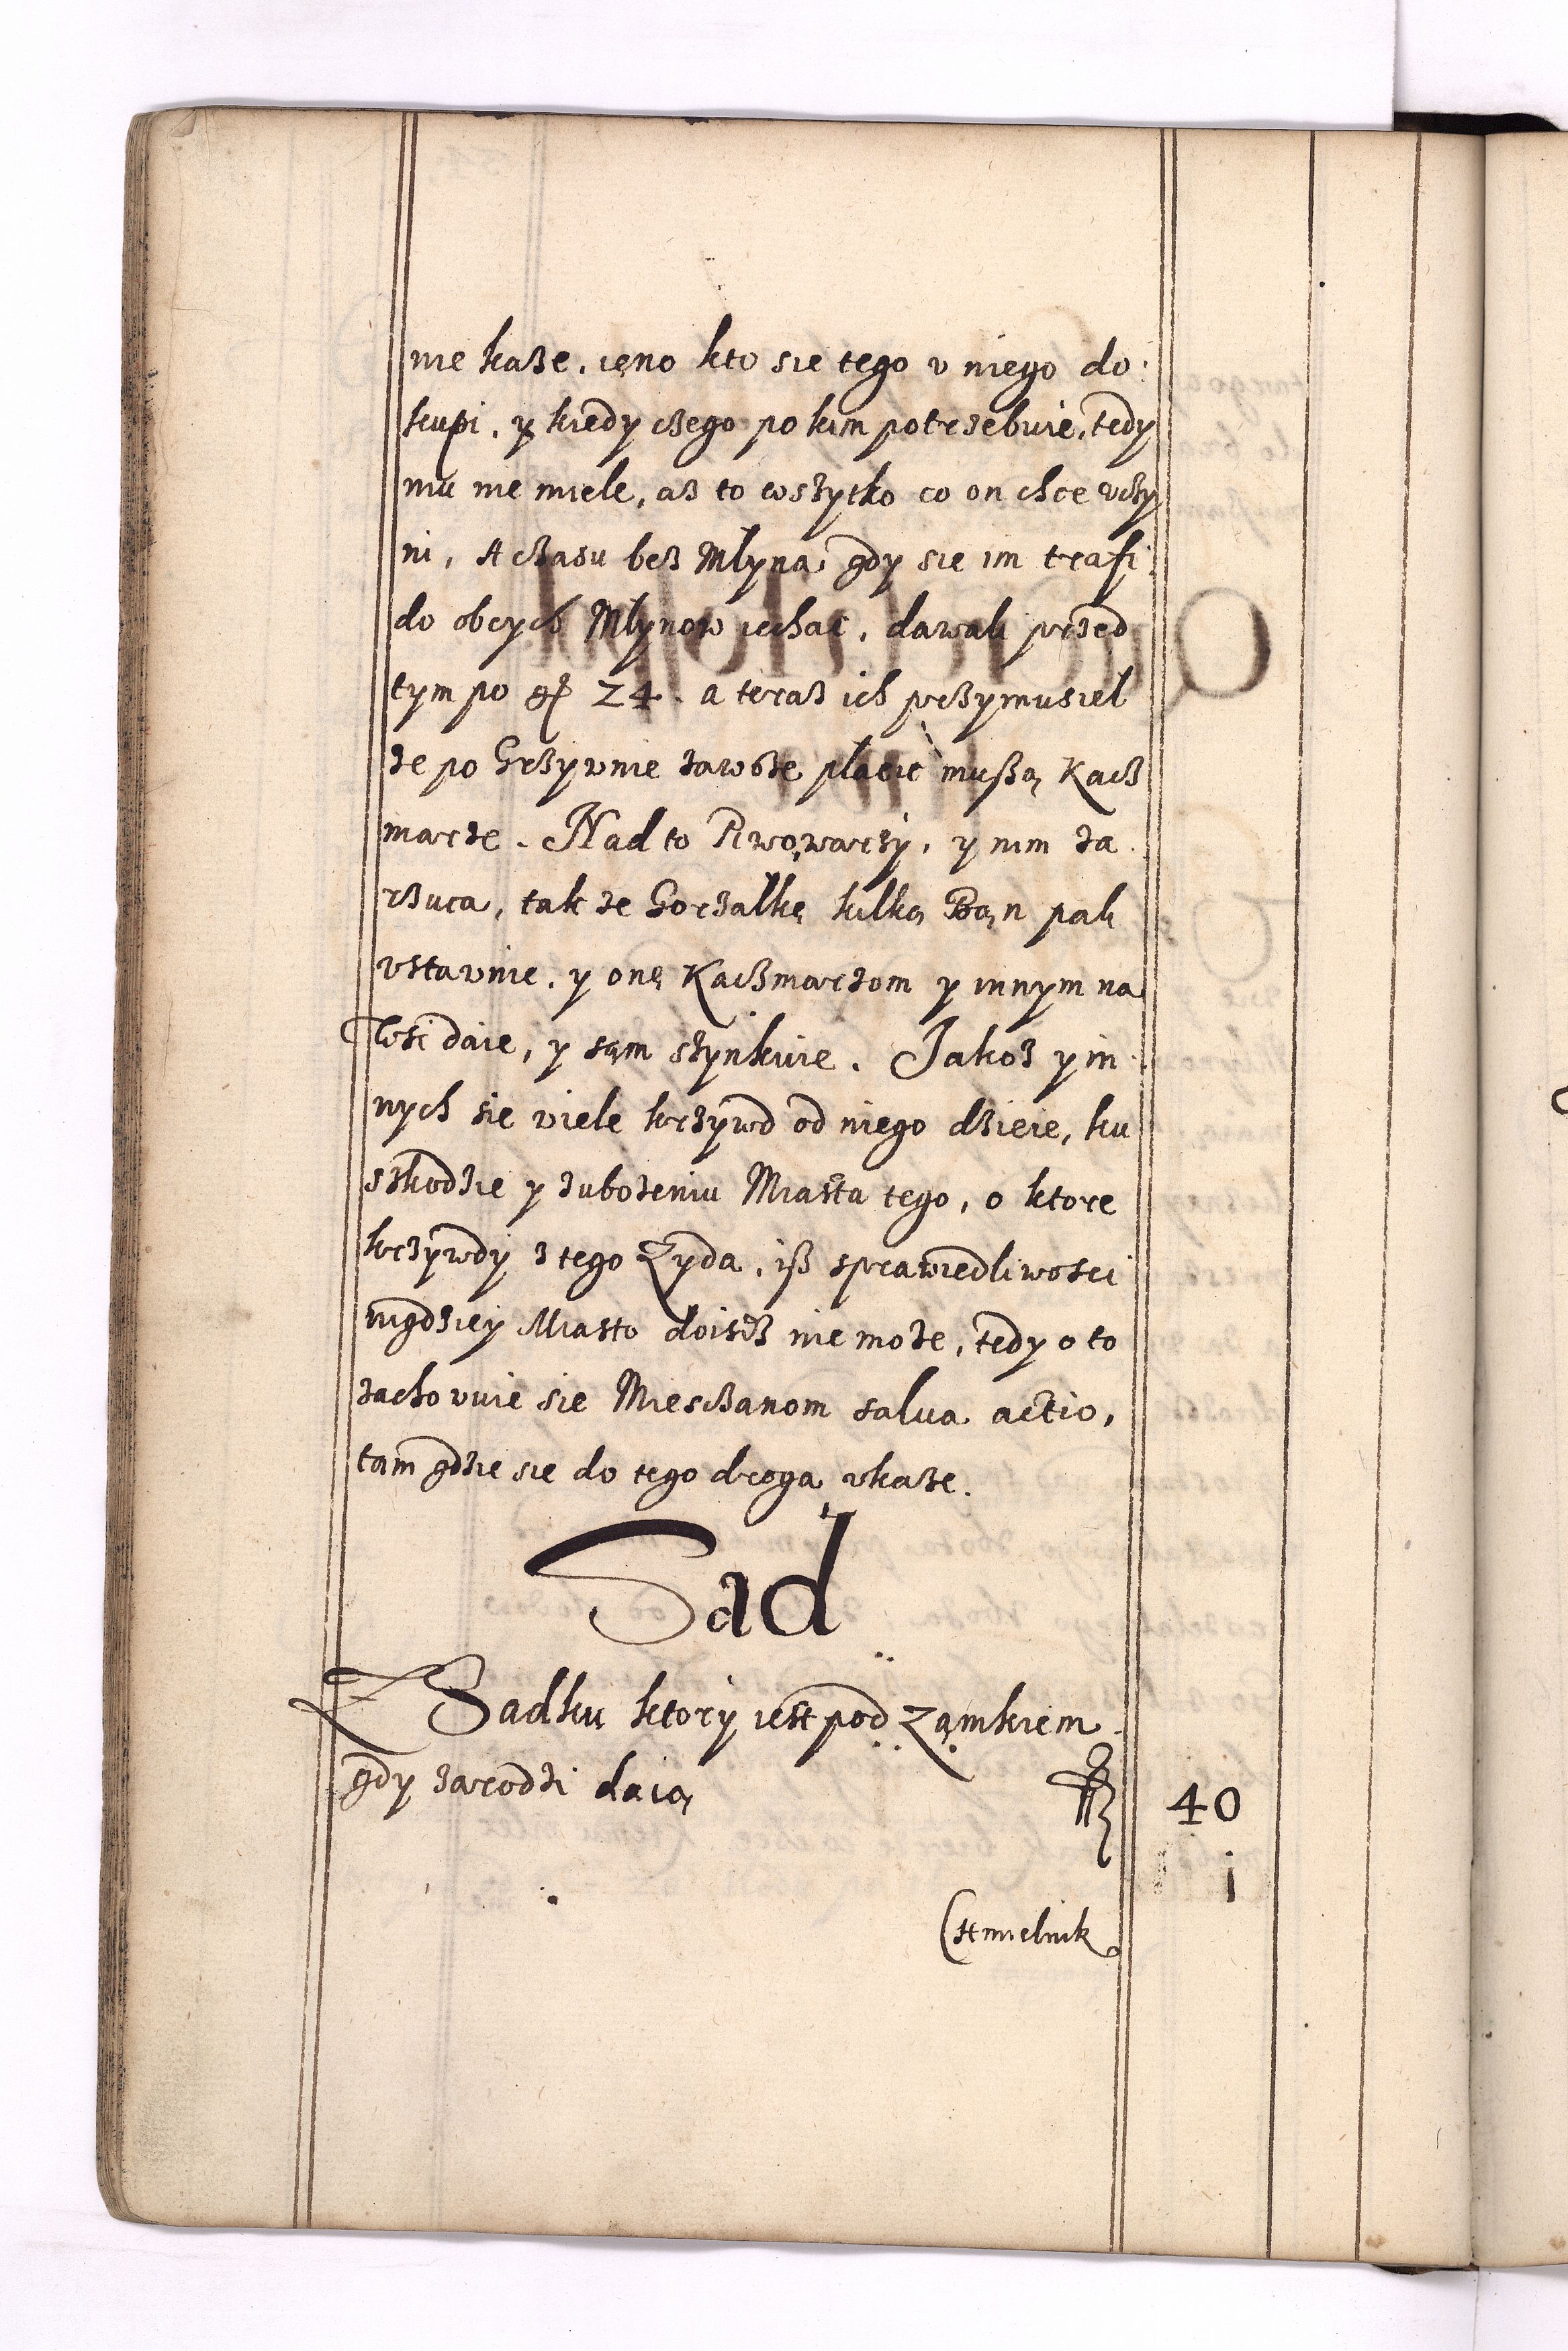 nie każe, ieno kto sie tego v niego do
kupi, y kiedy czego po kim potrzebuie, tedy
mu nie miele, aż to wszytko co on chce vczy
ni, A czasu bez Młyna, gdy sie im trafi
do obcych Młynow iechać, dawali przed
tym po gr 24. a teraz ich przymusieł
że po Grzywnie zawsze płacić muszą Kacz
marze. Nad to Piwowarzy, y nim za
rzuca, tak że Gorzałkę kilką Bąn pali
vstawnie, y onę Kaczmarzom y innym na
Wsi daie, y sąm szynkuie. Jakoż y in
nych sie wiele krzywd od niego dzieie, ku
szkodzie y zubożeniu Miasta tego, o ktore
krzywdy z tego Zyda, isz sprawiedliwosci
nigdziey Miasto doisdz nie może, tedy o to
zachowuie sie Mieszczanom salua actio,
tam gdzie sie do tego droga vkaże.
Sad
Z Sadku ktory iest pod Zamkiem
gdy zarodzi daią 40
i
Chmielnik